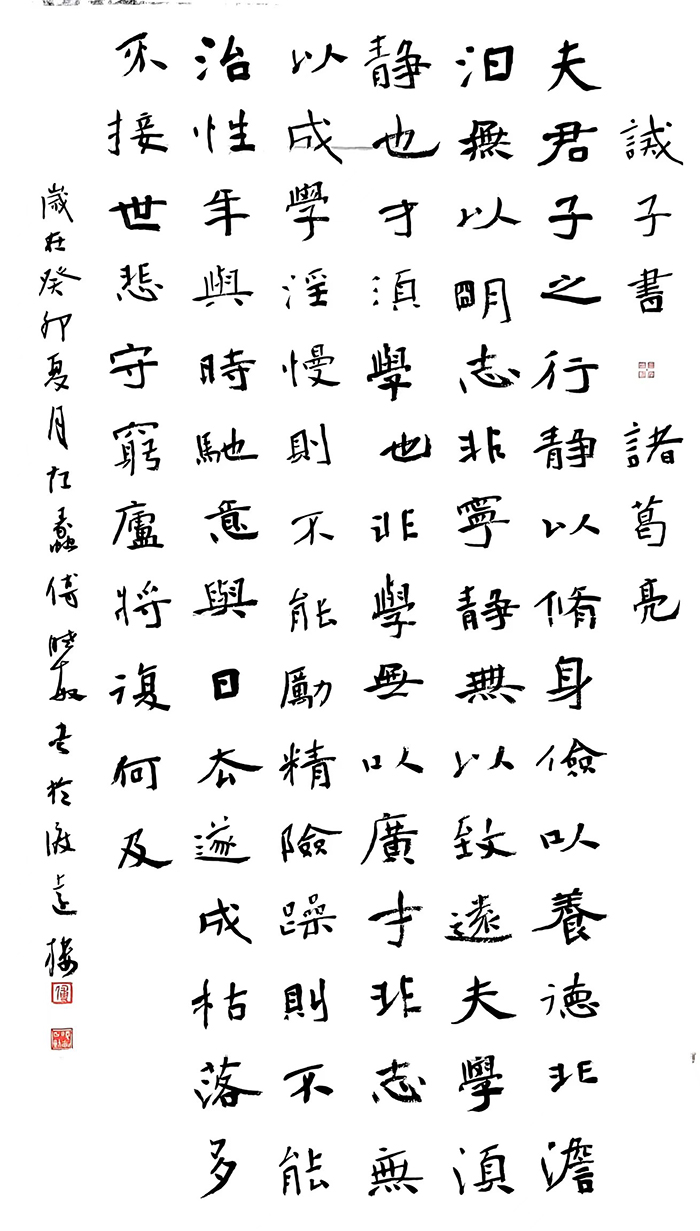 誡子書 諸葛亮
夫君子之行静以脩身儉以養德非澹
汨無以朙志非寧静無以致遠夫學湏
静也才湏學也非學無以廣才非志無
以成學淫慢則不能勵精險躁則不能
治性年與時馳意與日去遂成枯落多
不接世悲守窮廬將復何及
歲在癸卯夏月江書於遠樓